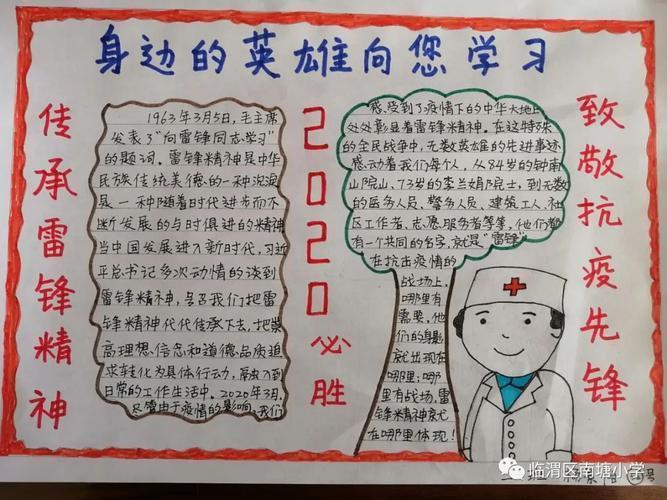 身边的英雄向您学习
传承雷锋精神
1963年3月5日,毛主席
发表了"向雷锋同志学习"
的题词。雷锋精神是中华
民族传统美德的一种沉淀
是一种随着时代进步而不
断发展的与时俱进的精神
当中国发展进入新时代,习近
平总书记多次动情的谈到
雷锋精神,号召我们把雷
锋精神代代传承下去,把崇
高理想、信念和道德品质追
求转化为具体行动,融入到
日常的工作生活中。2020年3月,
尽管由于疫情的影响,我们
2020必胜
感受到了疫情下的中华大地
处处彰显着雷锋精神。在这特殊
的全民战争中,无数英雄的先进事迹
感动着我们每个人,从84岁的钟南
山院山,73岁的李兰娟院士,到无数
的医务人员、警务人员、建筑工人、社
区工作者、志愿服务者等等,他们都
有一个共同的名字,就是"雷锋"
在抗击疫情的
战场上,
哪里有
需要,他
们的身影
就出现在
哪里;哪
里有战场,雷
锋精神就
在哪里体现!
致敬抗疫先锋
临渭区南塘小学